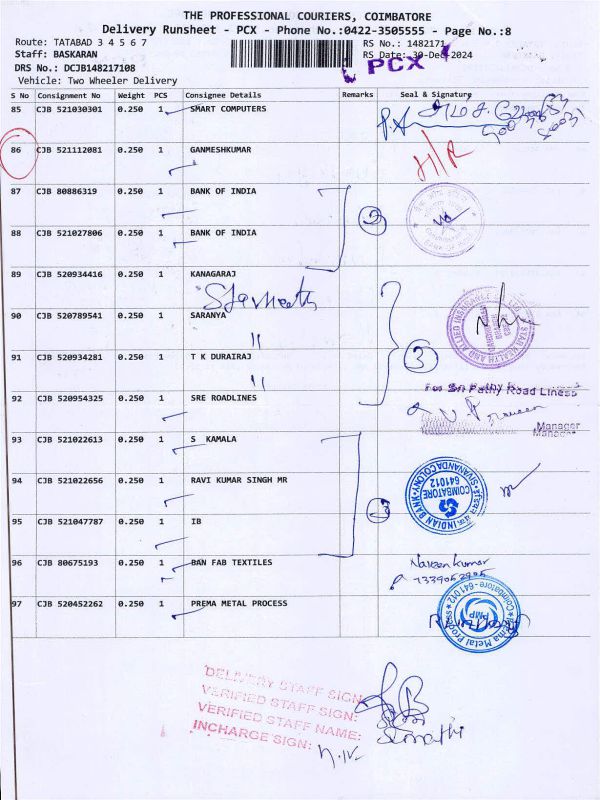 THE PROFESSIONAL COURIERS, COIMBATORE
Delivery Runsheet - PCX - Phone No.:0422-3505555 - Page No.:8
Route: TATABAD 3 4 5 6 7
RS No.: 1482171
Staff: BASKARAN
RS Date: 30-Dec-2024
DRS No.: DCJB148217108
PCX
Vehicle: Two Wheeler Delivery
S No Consignment No Weight PCS Consignee Details Remarks Seal & Signature
85 CJB 521030301 0.250 1 SMART COMPUTERS
86 CJB 521112081 0.250 1 GANMESHKUMAR
87 CJB 80886319 0.250 1 BANK OF INDIA
2
88 CJB 521027806 0.250 1 BANK OF INDIA
89 CJB 520934416 0.250 1 KANAGARAJ
90 CJB 520789541 0.250 1 SARANYA
STAR HEALTH AND ALLIED INSURANCE
"
91 CJB 520934281 0.250 1 T K DURAIRAJ
3
"
For Sri Pathy Road Liness
92 CJB 520954325 0.250 1 SRE ROADLINES
Manager
93 CJB 521022613 0.250 1 S KAMALA
94 CJB 521022656 0.250 1 RAVI KUMAR SINGH MR
INDIAN BANK SIVANANDA COLONY
COIMBATORE
641012
3
95 CJB 521047787 0.250 1 IB
96 CJB 80675193 0.250 1 BAN FAB TEXTILES
Naveen kumar
97 CJB 520452262 0.250 1 PREMA METAL PROCESS
Prema Metal Process Coimbatore - 641 012
PMP
DELIVERY STAFF SIGN:
VERIFIED STAFF SIGN:
VERIFIED STAFF NAME:
INCHARGE SIGN: